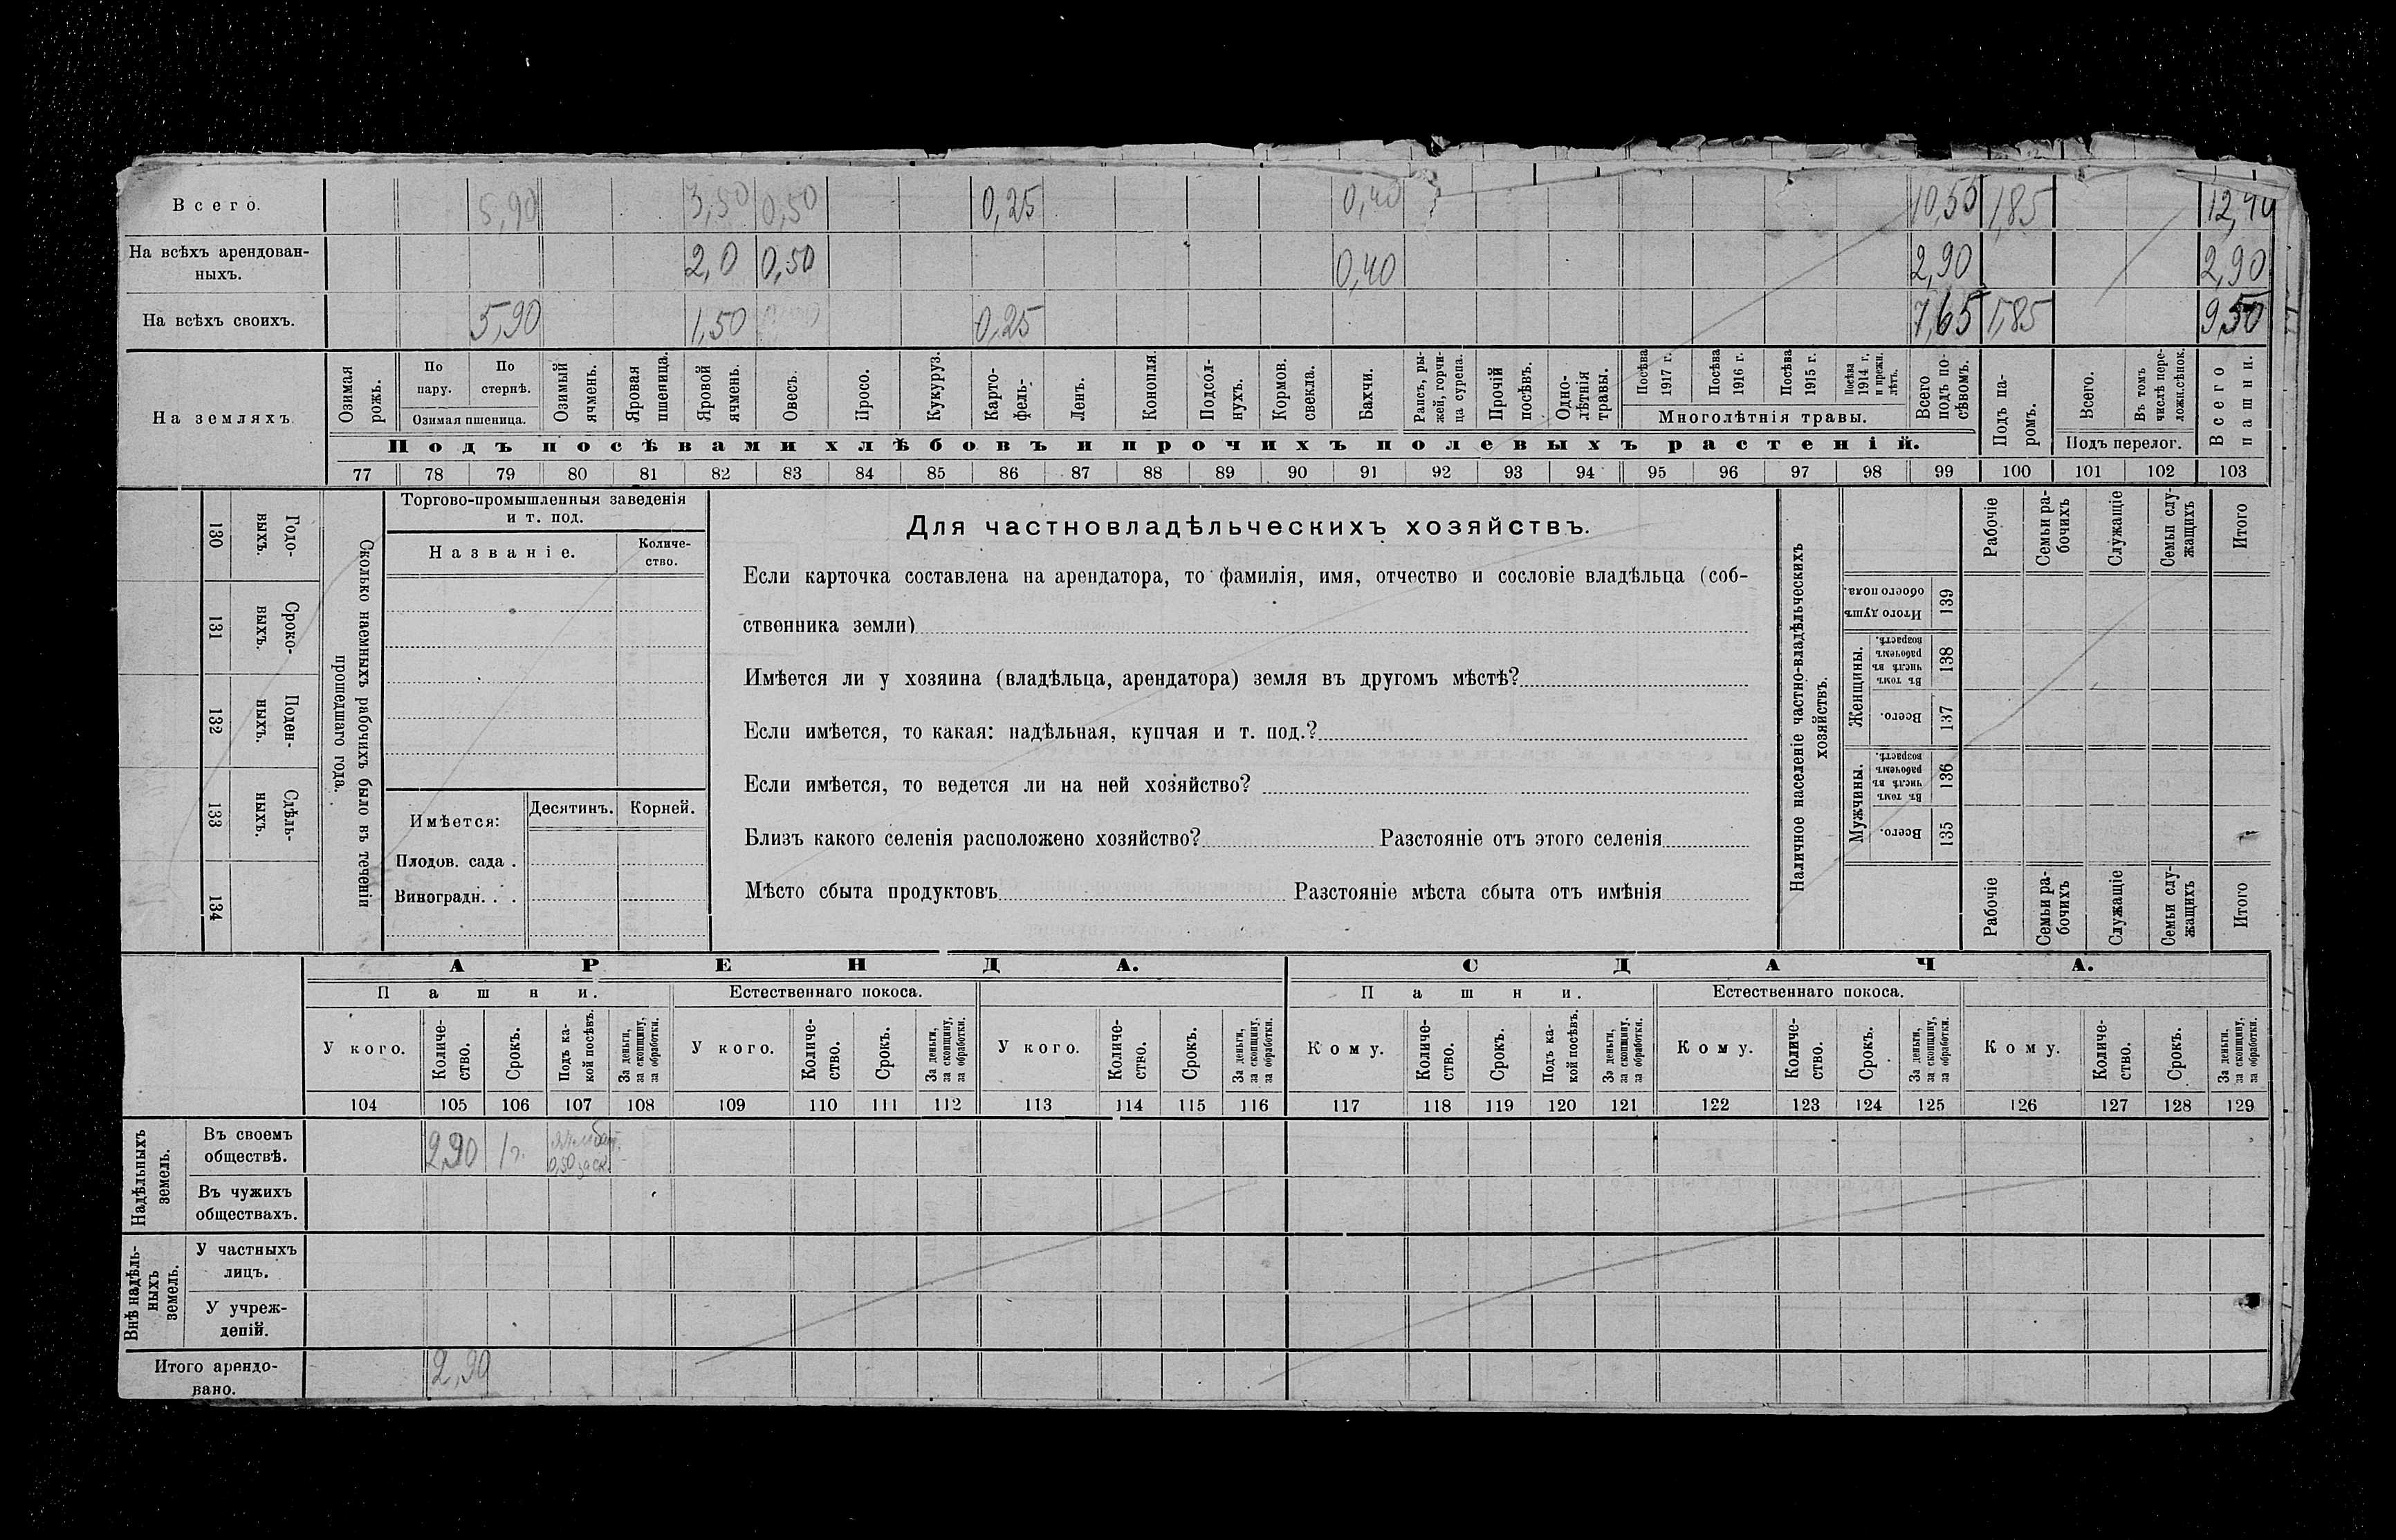 Всего. 5,90 3,50 0,50 0,25 0,40 10,55 1,85 12,40
На всѣхъ арендован-
ныхъ. 2,0 0,50 0,40 2,90 2,90
На всѣхъ своихъ. 5,90 1,50 0,25 7,65 1,85 9,50
На земляхъ
Озимая
рожь.
По
пару.
По
стернѣ.
Озимая пшеница.
Озимый
ячмень.
Яровая
пшеница.
Яровой
ячмень.
Овесъ.
Просо.
Кукуруз.
Карто-
фель-
Ленъ.
Конопля.
Подсол-
нухъ.
Кормов.
свекла.
Бахчи.
Рапсъ, ры-
жей, горчи-
ца сурепа.
Прочій
посѣвъ.
Одно-
лѣтнія
травы.
Посѣва
1917 г.
Посѣва
1916 г.
Посѣва
1915 г.
Посѣва
1914 г.
и прежн.
лѣтъ.
Многолѣтнія травы.
Всего
подъ по-
сѣвомъ.
Подъ па-
ромъ.
Всего.
Въ томъ
числѣ пере-
ложн.сѣнок.
Подъ перелог.
Всего
пашни.
Подъ посѣвами хлѣбовъ и прочихъ полевыхъ растеній.
77 78 79 80 81 82 83 84 85 86 87 88 89 90 91 92 93 94 95 96 97 98 99 100 101 102 103
Сколько наемныхъ рабочихъ было въ теченіи
прошедшаго года.
Годо-
выхъ.
130
Сроко-
выхъ.
131
Поден-
ныхъ.
132
Сдѣль-
ныхъ.
133
134
Торгово-промышленныя заведенія
и т. под.
Названіе.
Количе-
ство.
Имѣется:
Десятинъ.
Корней.
Плодов. сада .
Виноградн. . .
Для частновладѣльческихъ хозяйствъ.
Если карточка составлена на арендатора, то фамилія, имя, отчество и сословіе владѣльца (соб-
ственника земли)
Имѣется ли у хозяина (владѣльца, арендатора) земля въ другомъ мѣстѣ?
Если имѣется, то какая: надѣльная, купчая и т. под.?
Если имѣется, то ведется ли на ней хозяйство?
Близъ какого селенія расположено хозяйство? Разстояніе отъ этого селенія
Мѣсто сбыта продуктовъ Разстояніе мѣста сбыта отъ имѣнія
Наличное населеніе частно-владѣльческихъ
хозяйствъ.
Рабочіе
Семьи ра-
бочихъ
Служащіе
Семьи слу-
жащихъ
Итого
Итого душъ
обоего пола.
139
Женщины.
Въ томъ
числѣ въ
рабочемъ
возрастѣ.
138
Всего.
137
Мужчины.
Въ томъ
числѣ въ
рабочемъ
возрастѣ.
136
Всего.
135
Рабочіе
Семьи ра-
бочихъ
Служащіе
Семьи слу-
жащихъ
Итого
АРЕНДА. СДАЧА.
Пашни. Естественнаго покоса. Пашни. Естественнаго покоса.
У кого.
Количе-
ство.
Срокъ.
Подъ ка-
кой посѣвъ.
За деньги,
за скопщину,
за обработки.
У кого.
Количе-
ство.
Срокъ.
За деньги,
за скопщину,
за обработки.
У кого.
Количе-
ство.
Срокъ.
За деньги,
за скопщину,
за обработки.
Кому.
Количе-
ство.
Срокъ.
Подъ ка-
кой посѣвъ.
За деньги,
за скопщину.
за обработки.
Кому.
Количе-
ство.
Срокъ.
За деньги,
за скопщину,
за обработки.
Кому.
Количе-
ство.
Срокъ.
За деньги,
за скопщину,
за обработки.
104 105 106 107 108 109 110 111 112 113 114 115 116 117 118 119 120 121 122 123 124 125 126 127 128 129
Надѣльныхъ
земель.
Въ своемъ
обществѣ. 2,90 1 г.
0,50
Въ чужихъ
обществахъ.
Внѣ надѣль-
ныхъ
земель.
У частныхъ
лицъ.
У учреж-
деній.
Итого арендо-
вано. 2,90